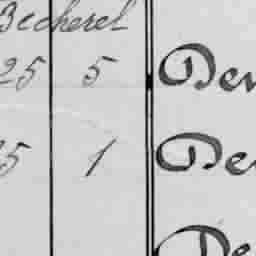 Becherel
25 5 Den
5 1 De
De